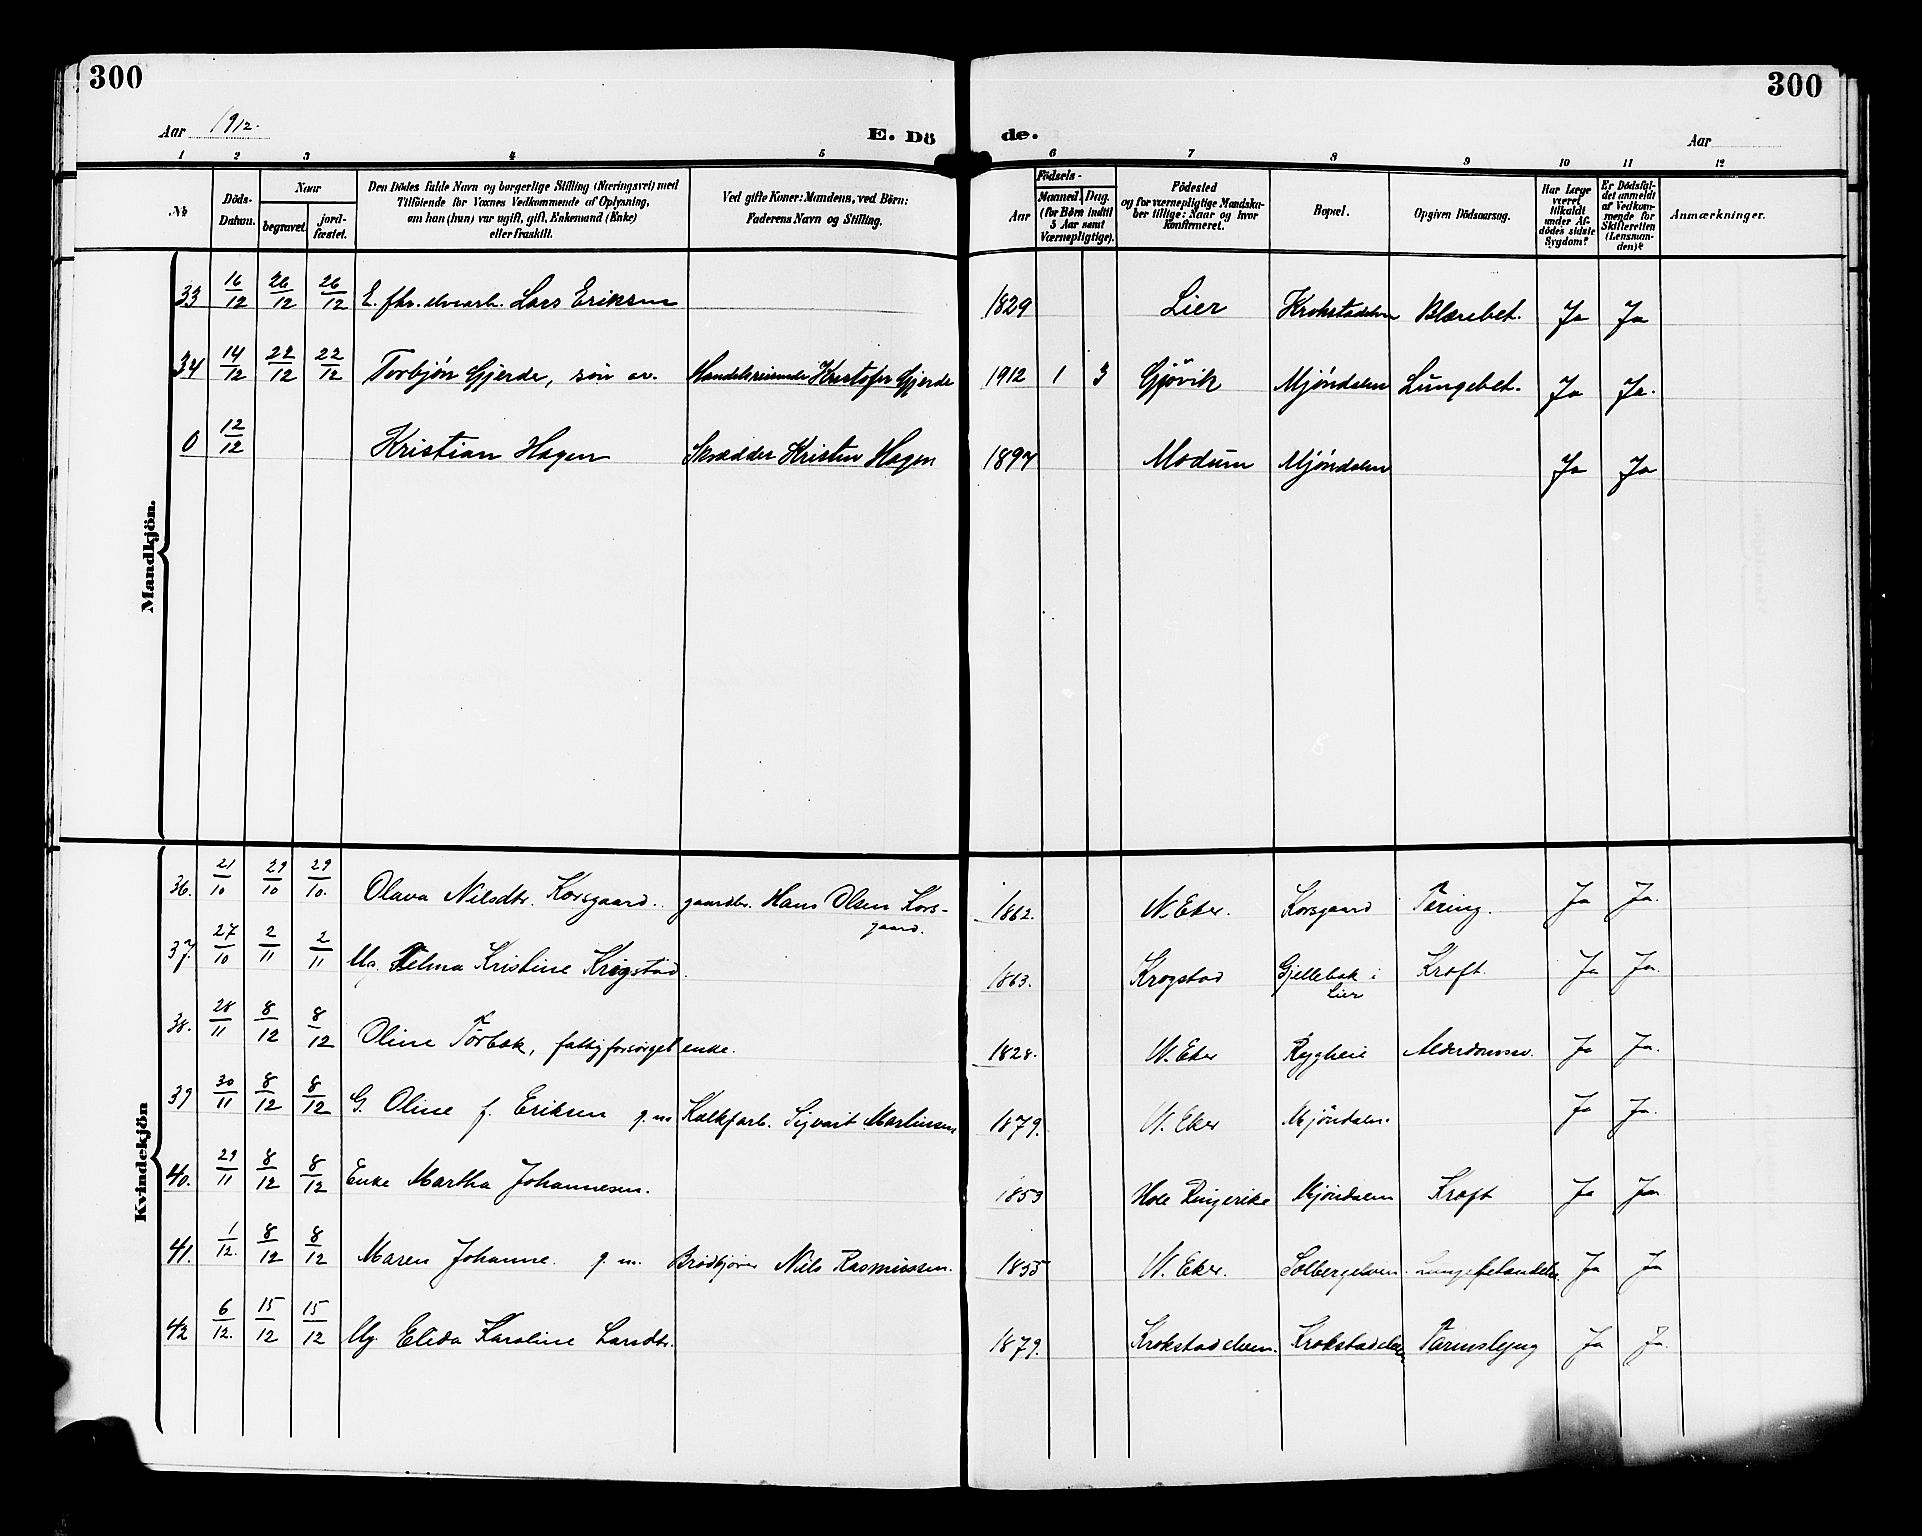 300
300
Aar 1912.
E. Dö de.
Aar
1 2 3 4 5 6 7 8 9 10 11 12
No
Döds-Datum.
Naar
begravet.
jord-fæstet.
Den Dödes fulde Navn og borgerlige Stilling (Næringsvei) med
Tilföiende for Voxnes Vedkommende af Oplysning,
om han (hun) var ugift, gift, Enkemand (Enke)
eller fraskilt.
Ved gifte Koner: Mandens, ved Börn:
Faderens Navn og Stilling.
Födsels-
Aar
Maaned. Dag.
(for Börn indtil
5 Aar samt
Værnepligtige).
Födested
og for værnepligtige Mandska-
ber tillige: Naar og hvor
Konfirmeret.
Bopæl.
Opgiven Dödsaarsag.
Har Læge
været
tilkaldt
under Af-
dödes sidste
Sygdom?
Er Dödsfal-
det anmeldt
af Vedkom-
mende for
Skifteretten
(Lensman-
den)?
Anmærkninger.
Mandkjön.
33 16/12 26/12 26/12 E. fhv. elvearb. Lars Eriksen 1829 Lier Krokstadelven Blærebet. Ja Ja
34 14/12 22/12 22/12 Torbjón Gjerde, sön av. Handelsreisende Kristofer Gjerde 1912 1 3 Gjövik Mjöndalen Lungebet. Ja Ja.
0 12/12 Kristian Hagen Skrædder Kristen Hagen 1897 Modum Mjöndalen Ja Ja
Kvindekjön
36. 21/10 29/10 29/10. Olava Nilsdtr. Korsgaard. gaardbr. Hans Olsen Kors-
gaard. 1862. N. Eker. Korsgaard Tæring. Ja Ja.
37. 27/10 2/11 2/11 Ug. Telma Kristine Krogstad. 1863. Krogstad Gjellebæk i
Lier Kræft Ja Ja.
38. 28/11 8/12 8/12 Oline Törbek, fattigforsörget enke. 1828. N. Eker Rygheie Alderdomssv. Ja Ja.
39 30/11 8/12 8/12 G. Oline f. Eriksen g. m Kalkfarb. Sigvart Martinsen 1879. N. Eker Mjöndalen. Ja Ja.
40. 29/11 8/12 8/12 Enke Martha Johannesen. 1853 Hole Ringerike Mjöndalen Kræft Ja Ja.
41. 1/12. 8/12 8/12 Maren Johanne. g. m. Brödkjörer Nils Rasmussen. 1855 N. Eker. Solbergelven. Ja Ja
42 6/12. 15/12 15/12 Ug. Elida Karoline Larsdtr. 1879. Krokstadelven. Krokstadelven Tarmslyng Ja Ja.